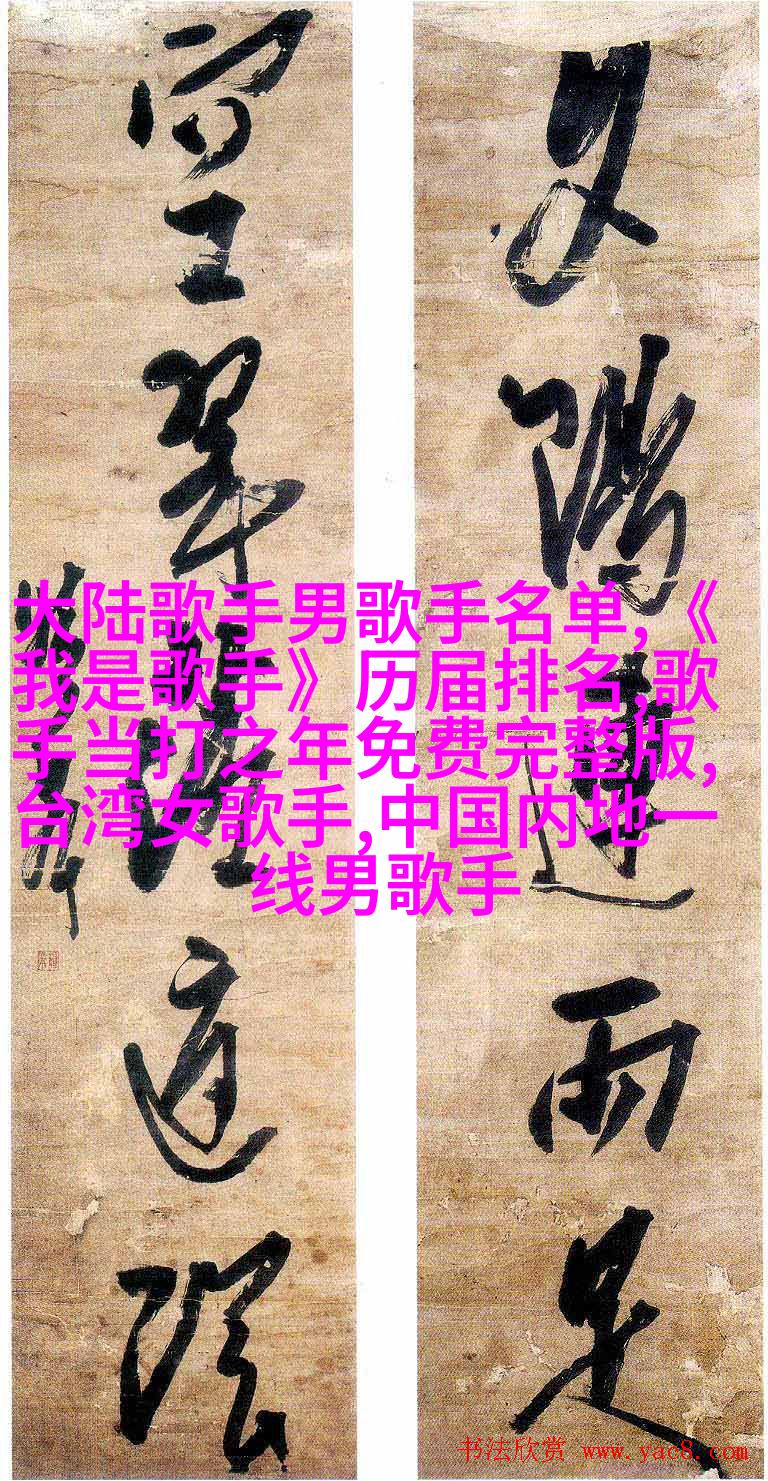 夕陽連雨足
空翠落庭陰
大陆歌手男歌手名单,《
我是歌手》历届排名,歌
手当打之年免费完整版,
台湾女歌手,中国内地一
线男歌手
书法欣赏 www.yac8.com